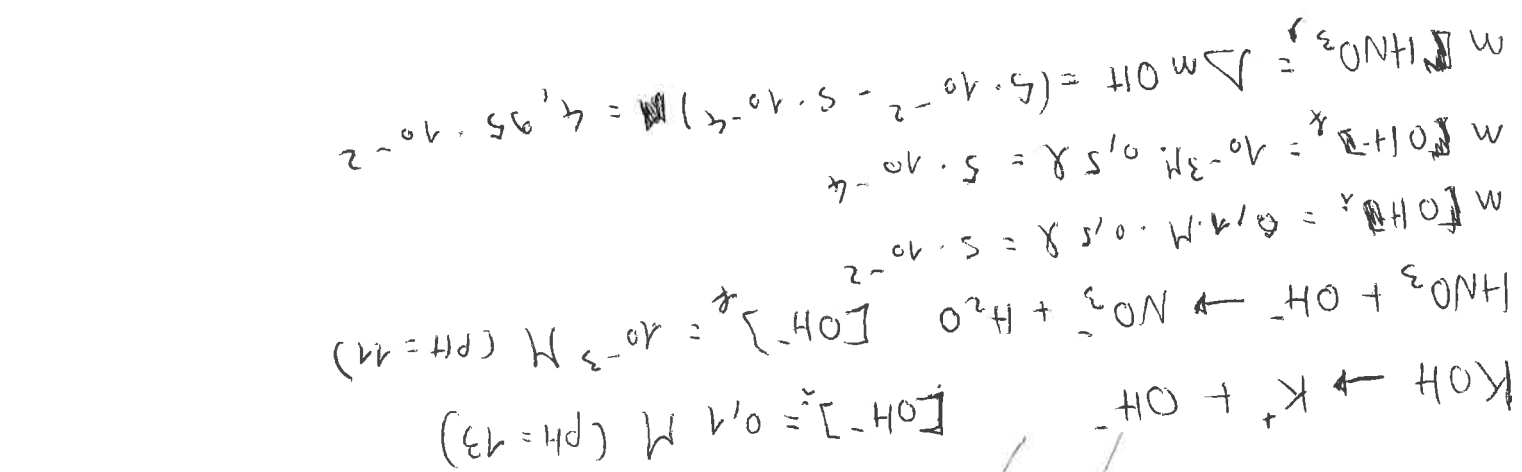 KOH → K⁺ + OH⁻ [OH⁻]ᵢ = 0,1 M (pH = 13)
HNO₃ + OH⁻ → NO₃⁻ + H₂O [OH⁻]f = 10⁻³ M (pH = 11)
n OHᵢ = 0,1 M · 0,5 l = 5 · 10⁻²
n OH⁻f = 10⁻³ M · 0,5 l = 5 · 10⁻⁴
n HNO₃ = Δn OH = (5 · 10⁻² - 5 · 10⁻⁴) = 4,95 · 10⁻²